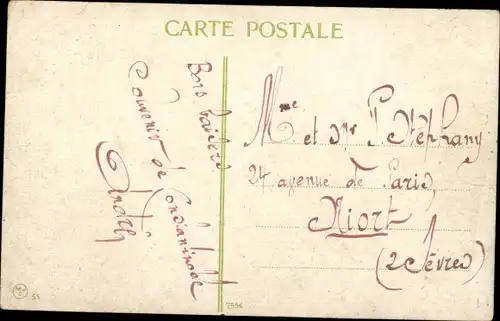 CARTE POSTALE
Bons baisers
Souvenir de Constantinople
André
Mme et Mr P. Stéphany
24 avenue de Paris,
Niort
(2 Sèvres)
55
7556